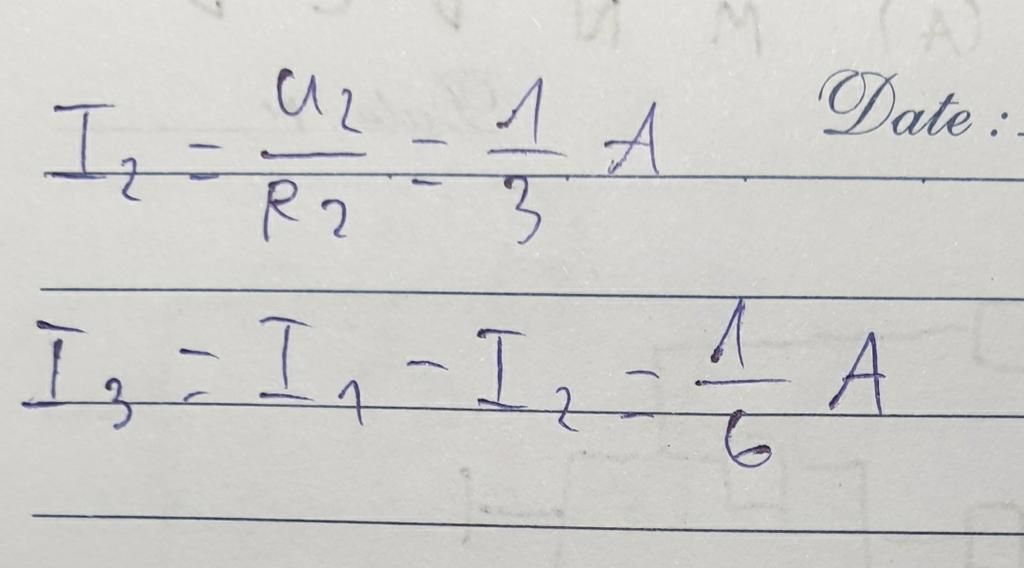 I₂ = U₂/R₂ = 1/3 A
Date :
I₃ = I₁ - I₂ = 1/6 A